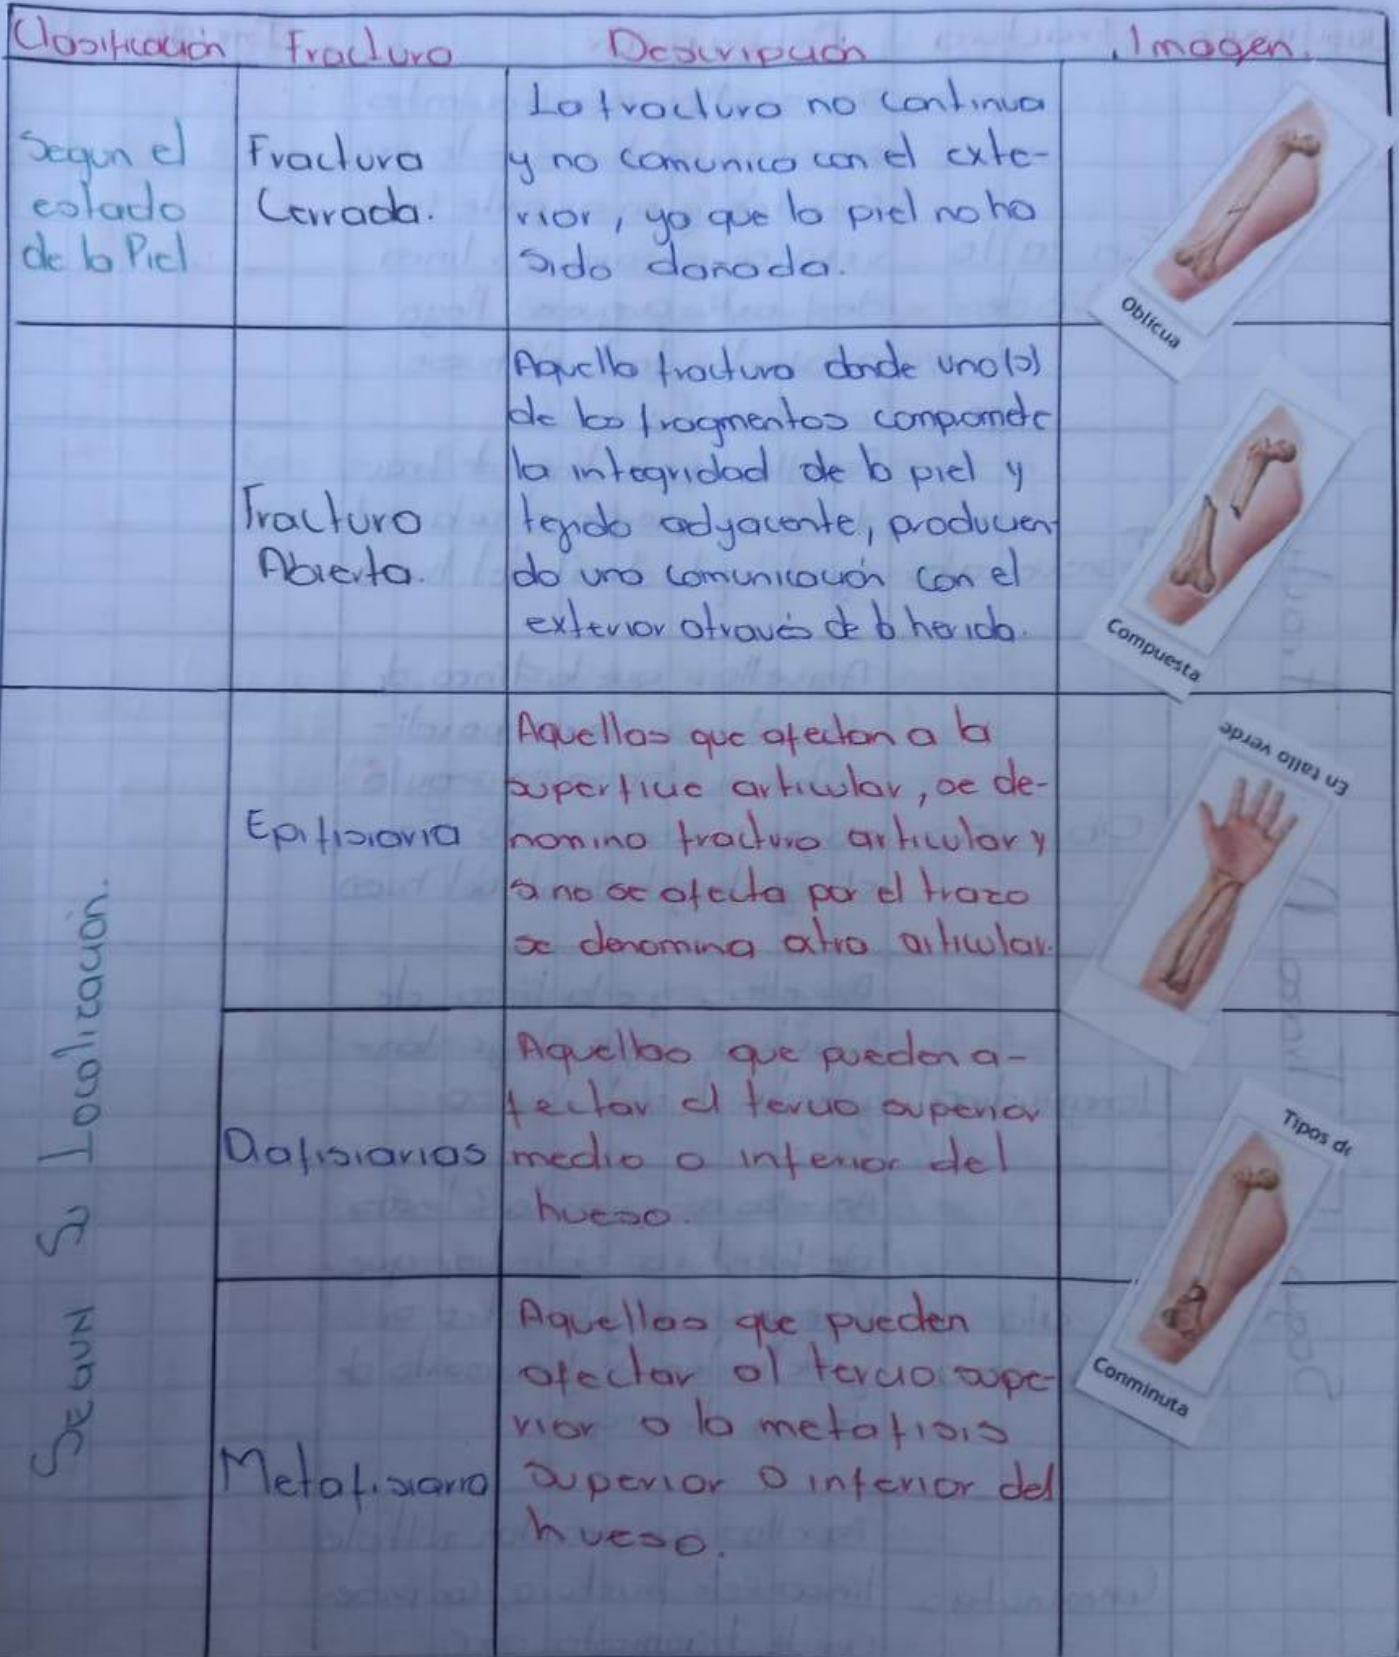 Clasificación Fractura Descripción Imagen.
Segun el
estado
de la Piel
Fractura
Cerrada.
La fractura no continua
y no comunica con el exte-
rior, ya que la piel no ha
sido dañada.
Oblicua
Fractura
Abierta.
Aquella fractura donde uno(s)
de los fragmentos compromete
la integridad de la piel y
tejido adyacente, producien-
do una comunicación con el
exterior através de la herida.
Compuesta
Segun Su Localización.
Epifisiaria
Aquellas que afectan a la
superficie articular, se de-
nomina fractura articular y
si no se afecta por el trazo
se denomina extra articular.
En tallo verde
Diafisiarias
Aquellas que pueden a-
fectar el tercio superior
medio o inferior del
hueso.
Tipos de
Conminuta
Metafisiaria
Aquellas que pueden
afectar al tercio supe-
rior o la metafisis
superior o inferior del
hueso.